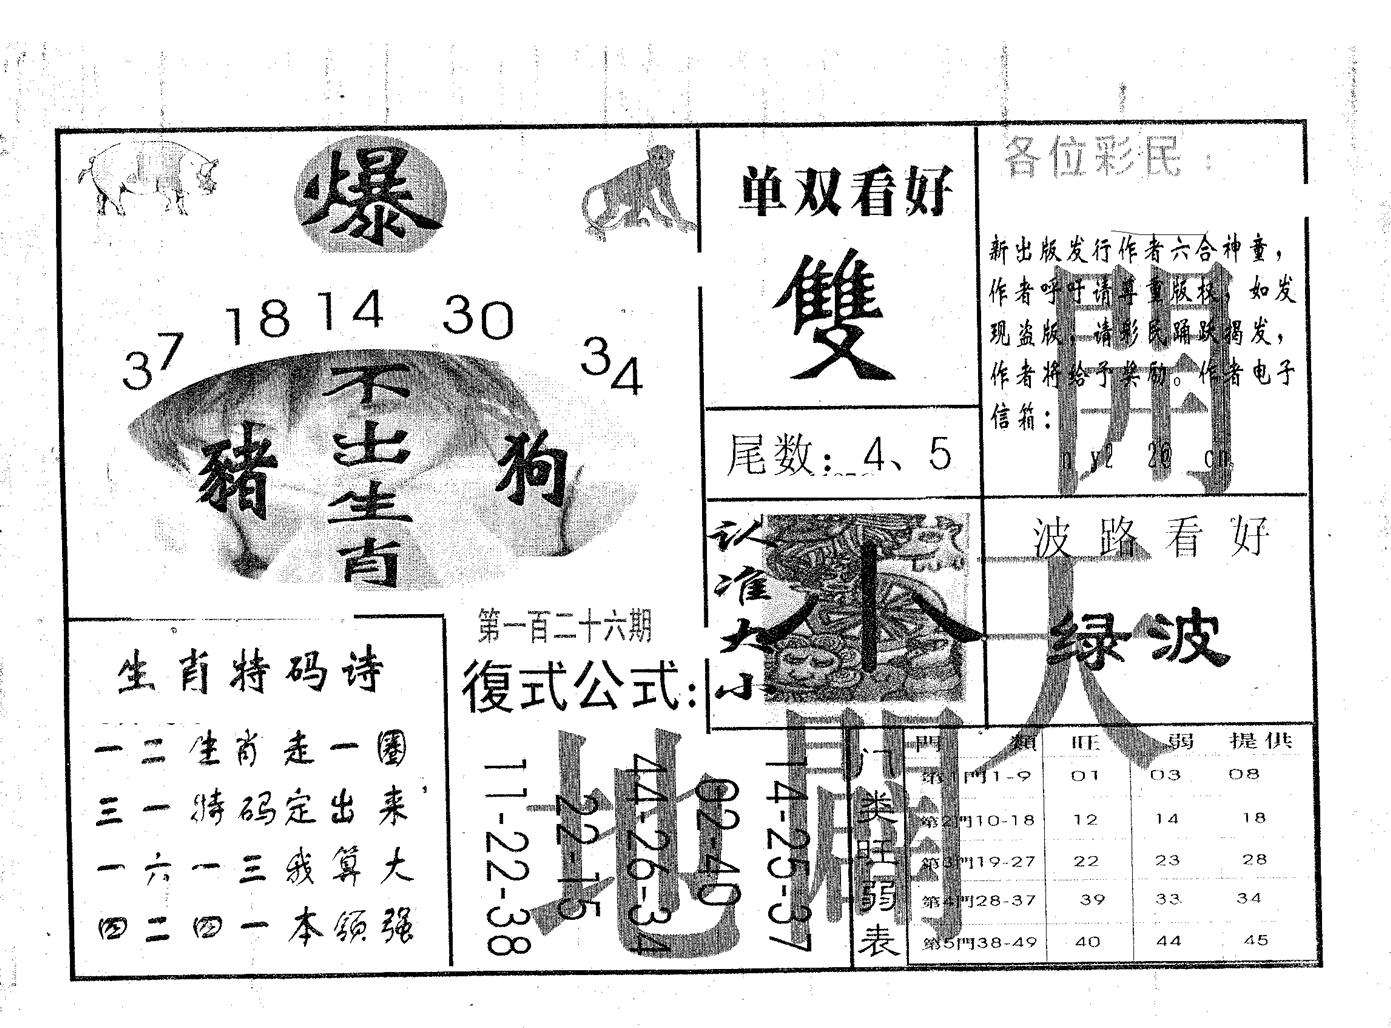 爆
37 18 14 30 34
不出生肖
豬
狗
单双看好
雙
尾数：4、5
各位彩民：
新出版发行作者六合神童，
作者呼吁请尊重版权，如发
现盗版，请彩民踊跃揭发，
作者将给予奖励。作者电子
信箱：
開
认准大小
小
波路看好
绿波
天
生肖特码诗
一二生肖走一圈
三一特码定出来
一六一三我算大
四二四一本领强
第一百二十六期
復式公式：
11-22-38
22-15
44-26-34
02-40
14-25-37
地
門類 旺 弱 提供
第1門1-9 01 03 08
第2門10-18 12 14 18
第3門19-27 22 23 28
第4門28-37 39 33 34
第5門38-49 40 44 45
门类旺弱表